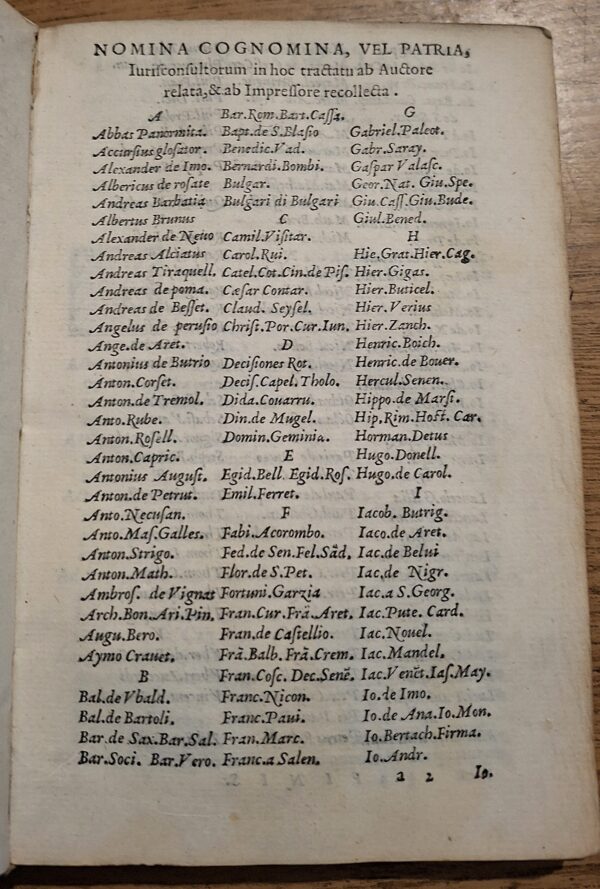 NOMINA COGNOMINA, VEL PATRIA,
Iurisconsultorum in hoc tractatu ab Auctore
relata, & ab Impressore recollecta.
A
Abbas Panormita.
Accursius glosator.
Alexander de Imo.
Albericus de rosate
Andreas Barbatia
Albertus Brunus
Alexander de Neuo
Andreas Alciatus
Andreas Tiraquell.
Andreas de poma.
Andreas de Besset.
Angelus de perusio
Ange.de Aret.
Antonius de Butrio
Anton.Corset.
Anton.de Tremol.
Anto.Rube.
Anton.Rosell.
Anton.Capric.
Antonius August.
Anton.de Petrut.
Anto.Necusan.
Anto.Mas.Galles.
Anton.Strigo.
Anton.Math.
Ambros. de Vignat
Arch.Bon.Ari.Pin.
Augu.Bero.
Aymo Crauet.
B
Bal.de Vbald.
Bal.de Bartoli.
Bar.de Sax.Bar.Sal.
Bar.Soci. Bar.Vero.
Bar.Rom.Bart.Cassa.
Bapt.de S.Blasio
Benedic.Vad.
Bernardi.Bombi.
Bulgar.
Bulgari di Bulgari
C
Camil.Visitar.
Carol.Rui.
Catel.Cot.Cin.de Pis.
Cæsar Contar.
Claud. Seysel.
Christ.Por.Cur.Iun.
D
Decisiones Rot.
Decis.Capel.Tholo.
Dida.Couarru.
Din.de Mugel.
Domin.Geminia.
E
Egid.Bell. Egid.Ros.
Emil.Ferret.
F
Fabi.Acorombo.
Fed.de Sen.Fel.Sãd.
Flor.de S.Pet.
Fortuni.Garzia
Fran.Cur.Frã.Aret.
Fran.de Castellio.
Frã.Balb.Frã.Crem.
Fran.Cosc. Dec.Senẽ.
Franc.Nicon.
Franc.Paui.
Fran.Marc.
Franc.a Salen.
G
Gabriel.Paleot.
Gabr.Saray.
Gaspar Valasc.
Geor.Nat. Giu.Spe.
Giu.Cass.Giu.Bude.
Giul.Bened.
H
Hie.Grat.Hier.Cag.
Hier.Gigas.
Hier.Buticel.
Hier.Verius
Hier.Zanch.
Henric.Boich.
Henric.de Bouer.
Hercul.Senen.
Hippo.de Marsi.
Hip.Rim.Hoft. Car.
Horman.Detus
Hugo.Donell.
Hugo.de Carol.
I
Iacob. Butrig.
Iaco.de Aret.
Iac.de Belui
Iac.de Nigr.
Iac.a S.Georg.
Iac.Pute. Card.
Iac.Nouel.
Iac.Mandel.
Iac.Venẽt.Ias.May.
Io.de Imo.
Io.de Ana.Io.Mon.
Io.Bertach.Firma.
Io.Andr.
a 2 Io.